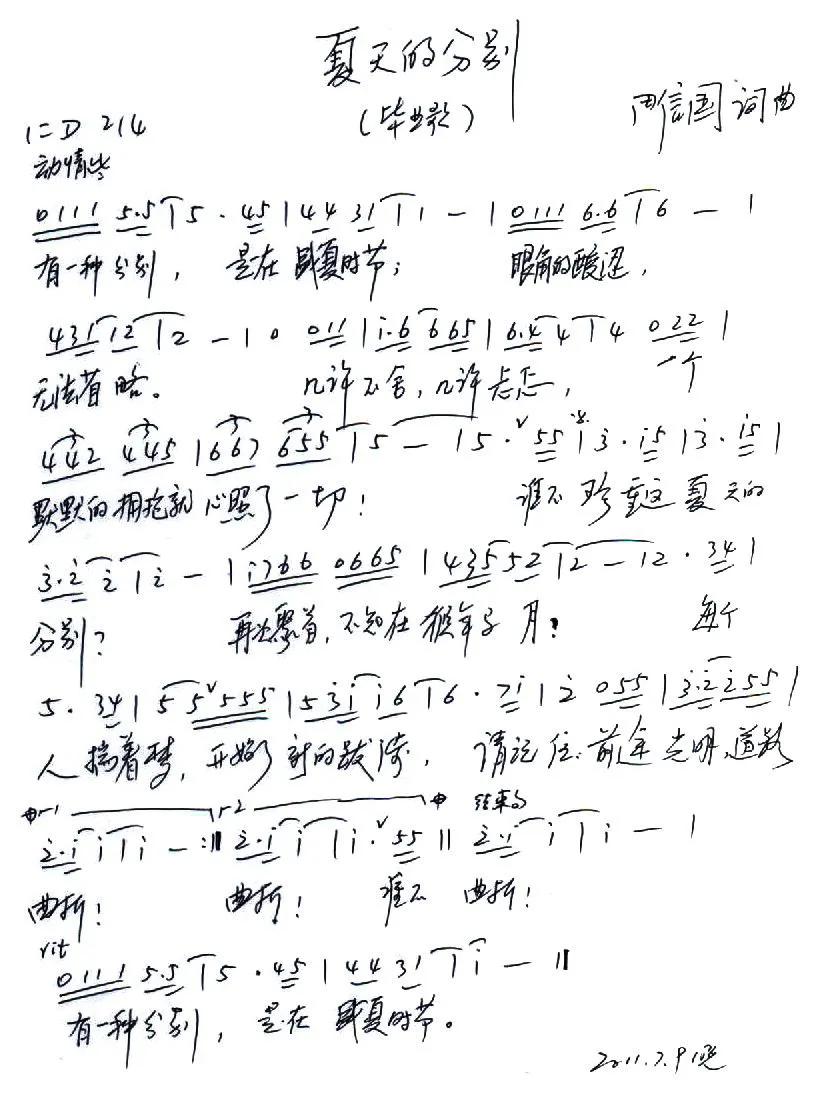 夏天的分别
(毕业歌)
信国 词曲
1=D 2/4
动情些
0111 5·5 | 5 · 45 | 44 31 | 1 - | 0111 6·6 | 6 - |
有一种分别， 是在盛夏时节； 眼角的酸涩，
431 12 | 2 - | 0 011 | i·6 665 | 6·4 4 | 4 022 |
无法省略。 几许不舍，几许忐忑， 一个
442 445 | 667 655 | 5 - | 5 · 55 | 3 · i5 | 3 · i5 |
默默的拥抱就心照了一切！ 谁不珍重这夏天的
3·2 2 | 2 - | i766 0665 | 435 52 | 2 - | 2 · 34 |
分别？ 再次聚首，不知在猴年马月？ 每个
5 · 34 | 5 5 555 | 5 3i i6 | 6 · 7i | 2 055 | 3·2 255 |
人揣着梦，开始了新的跋涉， 请记住：前途光明、道路
1 2 结束句
2·i i | i - :|| 2·i i | i · 55 || 2·i i | i - |
曲折！ 曲折！ 谁不 曲折！
rit
0111 5·5 | 5 · 45 | 44 31 | i - ||
有一种分别， 是在盛夏时节。
2011.7.9晚